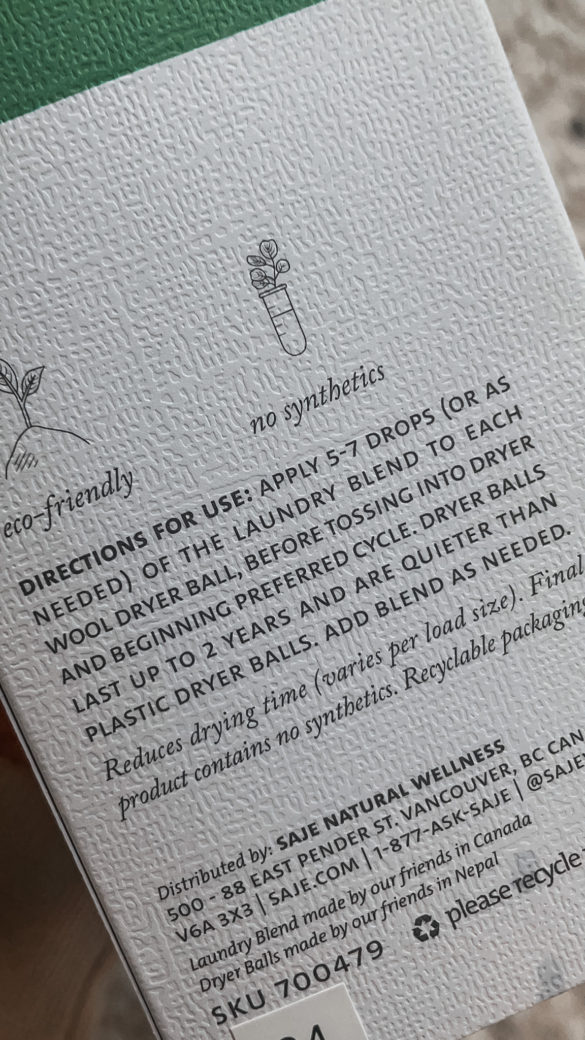 no synthetics
eco-friendly
DIRECTIONS FOR USE: APPLY 5-7 DROPS (OR AS
NEEDED) OF THE LAUNDRY BLEND TO EACH
WOOL DRYER BALL, BEFORE TOSSING INTO DRYER
AND BEGINNING PREFERRED CYCLE. DRYER BALLS
LAST UP TO 2 YEARS AND ARE QUIETER THAN
PLASTIC DRYER BALLS. ADD BLEND AS NEEDED.
Reduces drying time (varies per load size). Final
product contains no synthetics. Recyclable packaging
Distributed by: SAJE NATURAL WELLNESS
500 - 88 EAST PENDER ST. VANCOUVER, BC CAN
V6A 3X3 | SAJE.COM | 1-877-ASK-SAJE |
Laundry Blend made by our friends in Canada
Dryer Balls made by our friends in Nepal
SKU 700479 please recycle